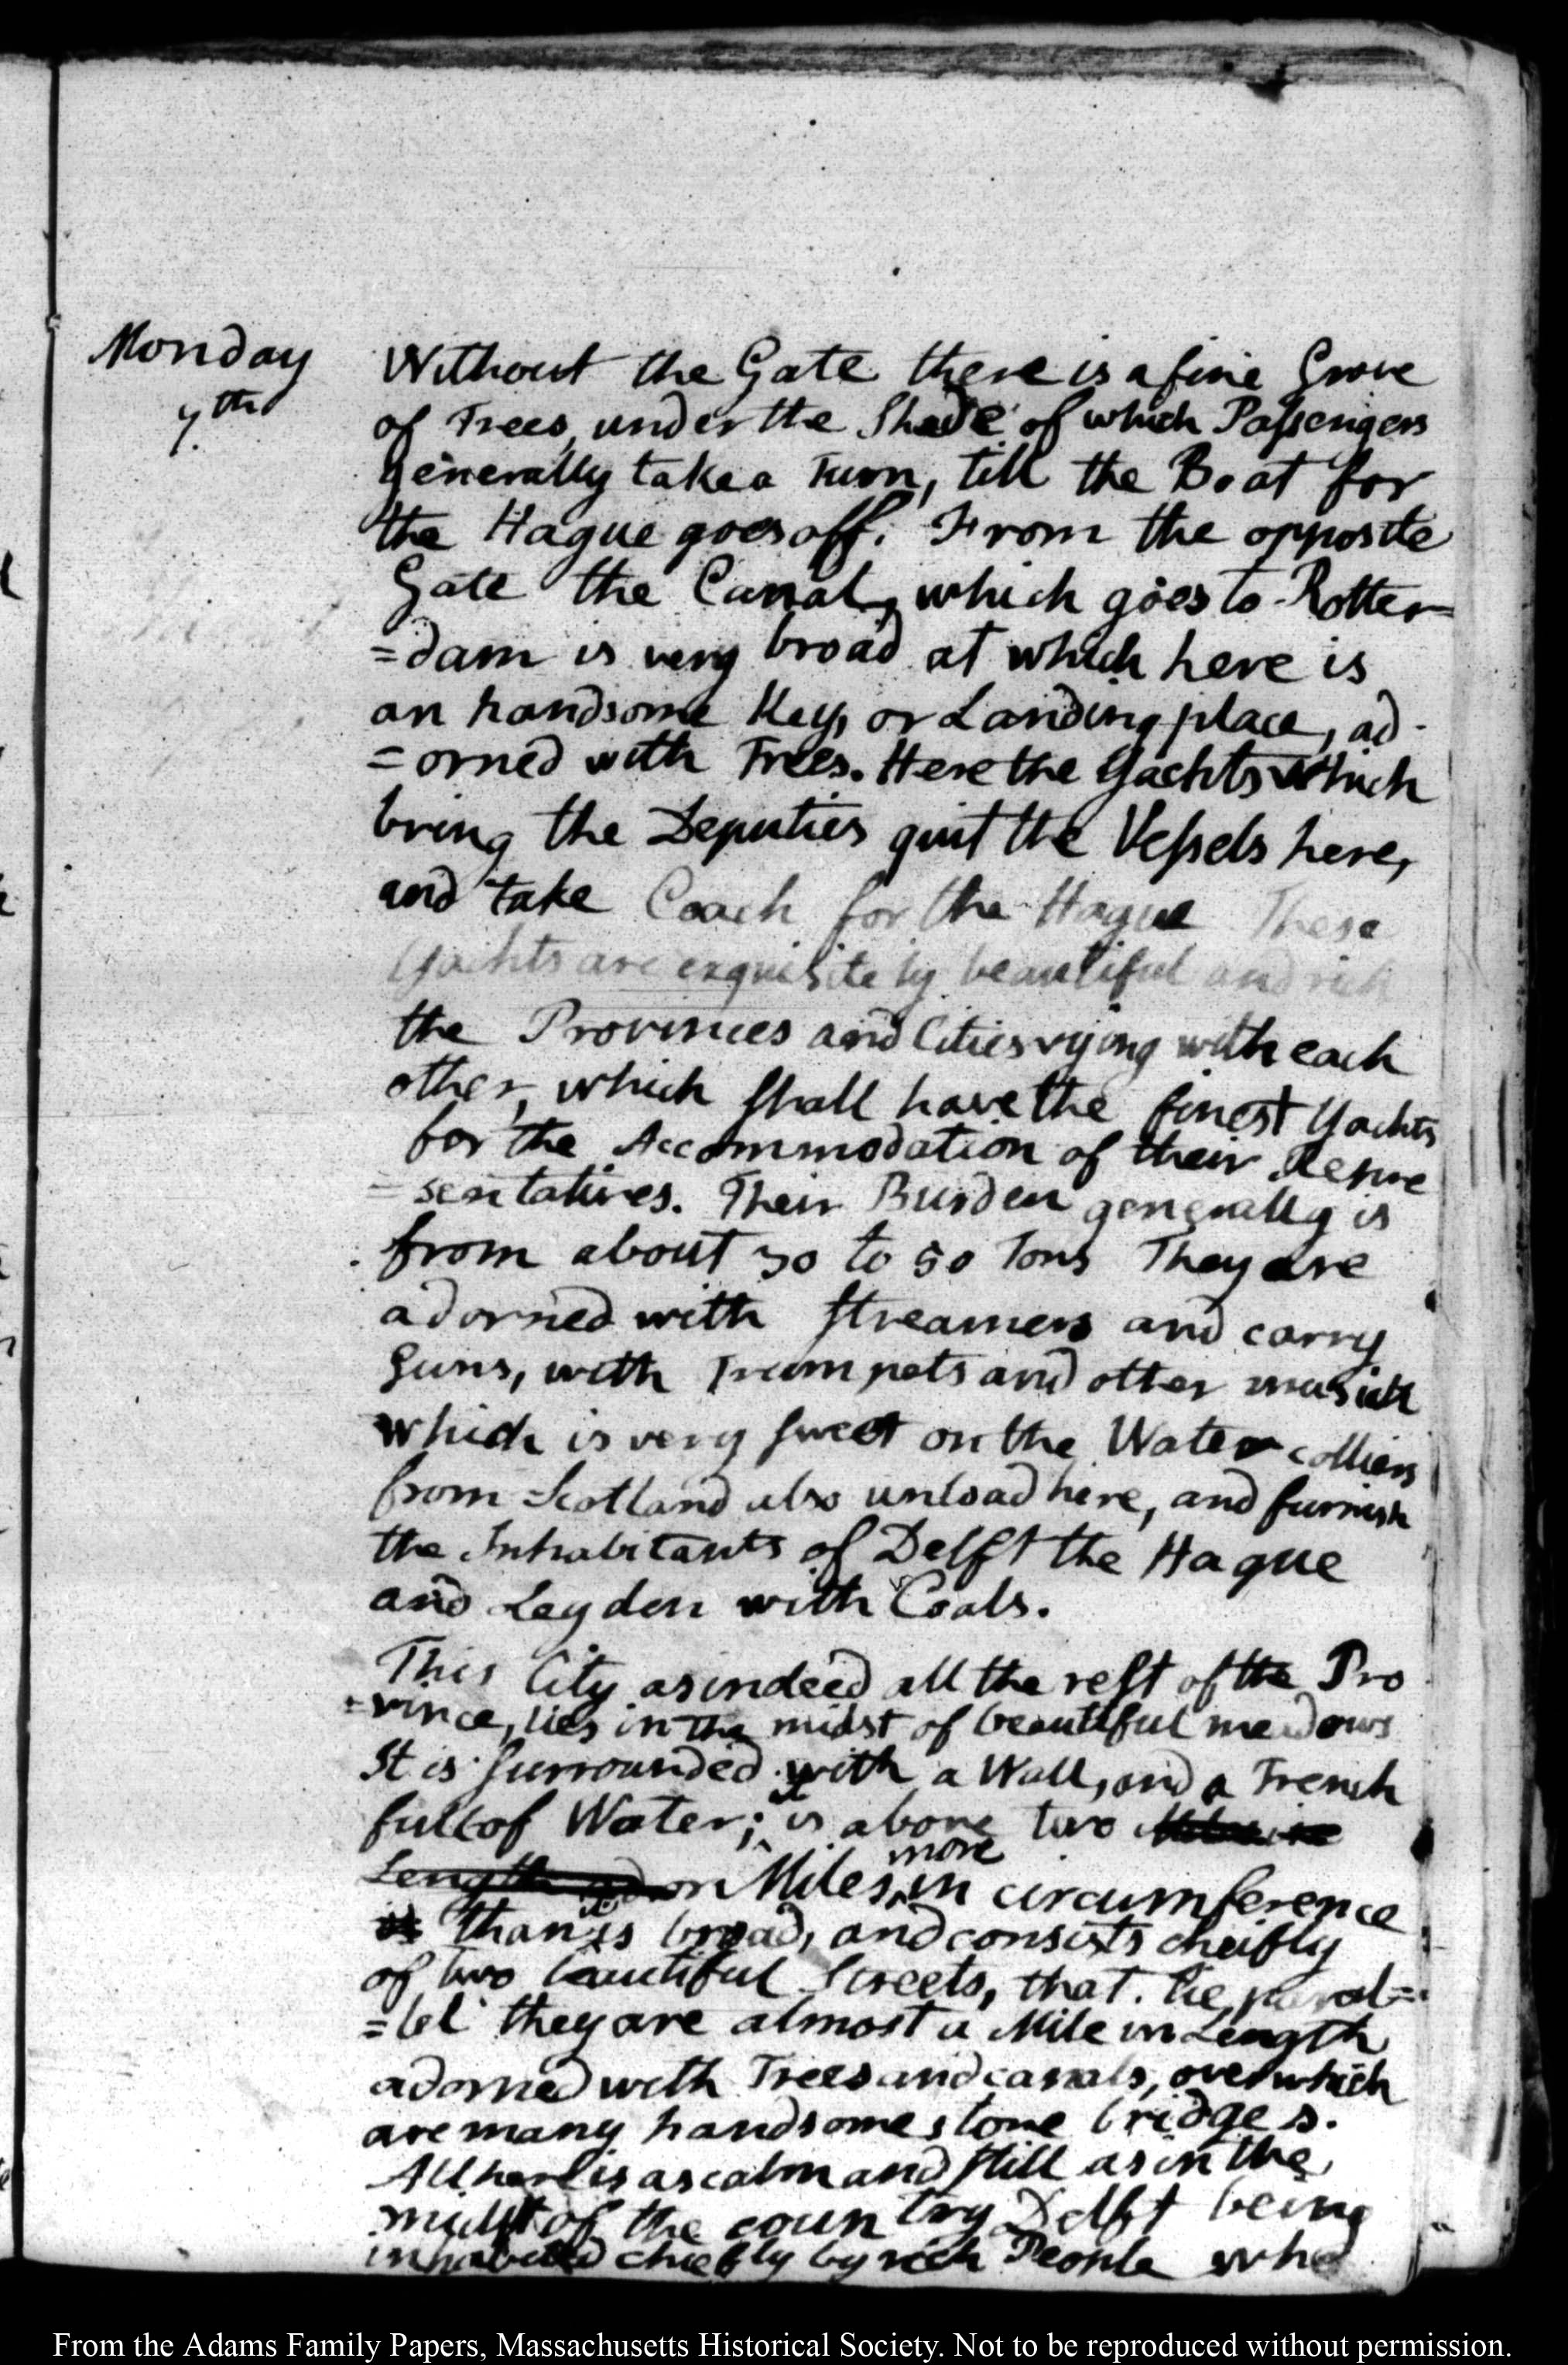 Monday
7th
Without the Gate there is a fine Grove
of Trees, under the Shade of which Passengers
generally take a Turn, till the Boat for
the Hague goes off. From the opposite
Gate the Canal, which goes to Rotter=
=dam is very broad at which here is
an handsome Key, or Landing place, ad-
=orned with Trees. Here the Yachts which
bring the Deputies quit the Vessels here,
and take Coach for the Hague These
Yachts are exquisitely beautiful and rich
the Provinces and Cities vying with each
other, which shall have the finest Yachts
for the Accommodation of their Repre
=sentatives. Their Burden generally is
from about 30 to 50 Tons They are
adorned with streamers and carry
Guns, with Trumpets and other musick
which is very sweet on the Water colliers
from Scotland also unload here, and furnish
the Inhabitants of Delft the Hague
and Leyden with Coals.
This City as indeed all the rest of the Pro
=vince, lies in the midst of beautiful meadows
It is surrounded with a Wall, and a Trench
full of Water; it is above two Miles in
Length and or Miles, more in circumference
is than it is broad, and consists cheifly
of two beautiful Streets, that lie paral=
=lel they are almost a Mile in Length
adorned with Trees and canals, over which
are many handsome stone bridges.
All here is as calm and still as in the
midst of the country Delft being
inhabited chiefly by rich People who
From the Adams Family Papers, Massachusetts Historical Society. Not to be reproduced without permission.